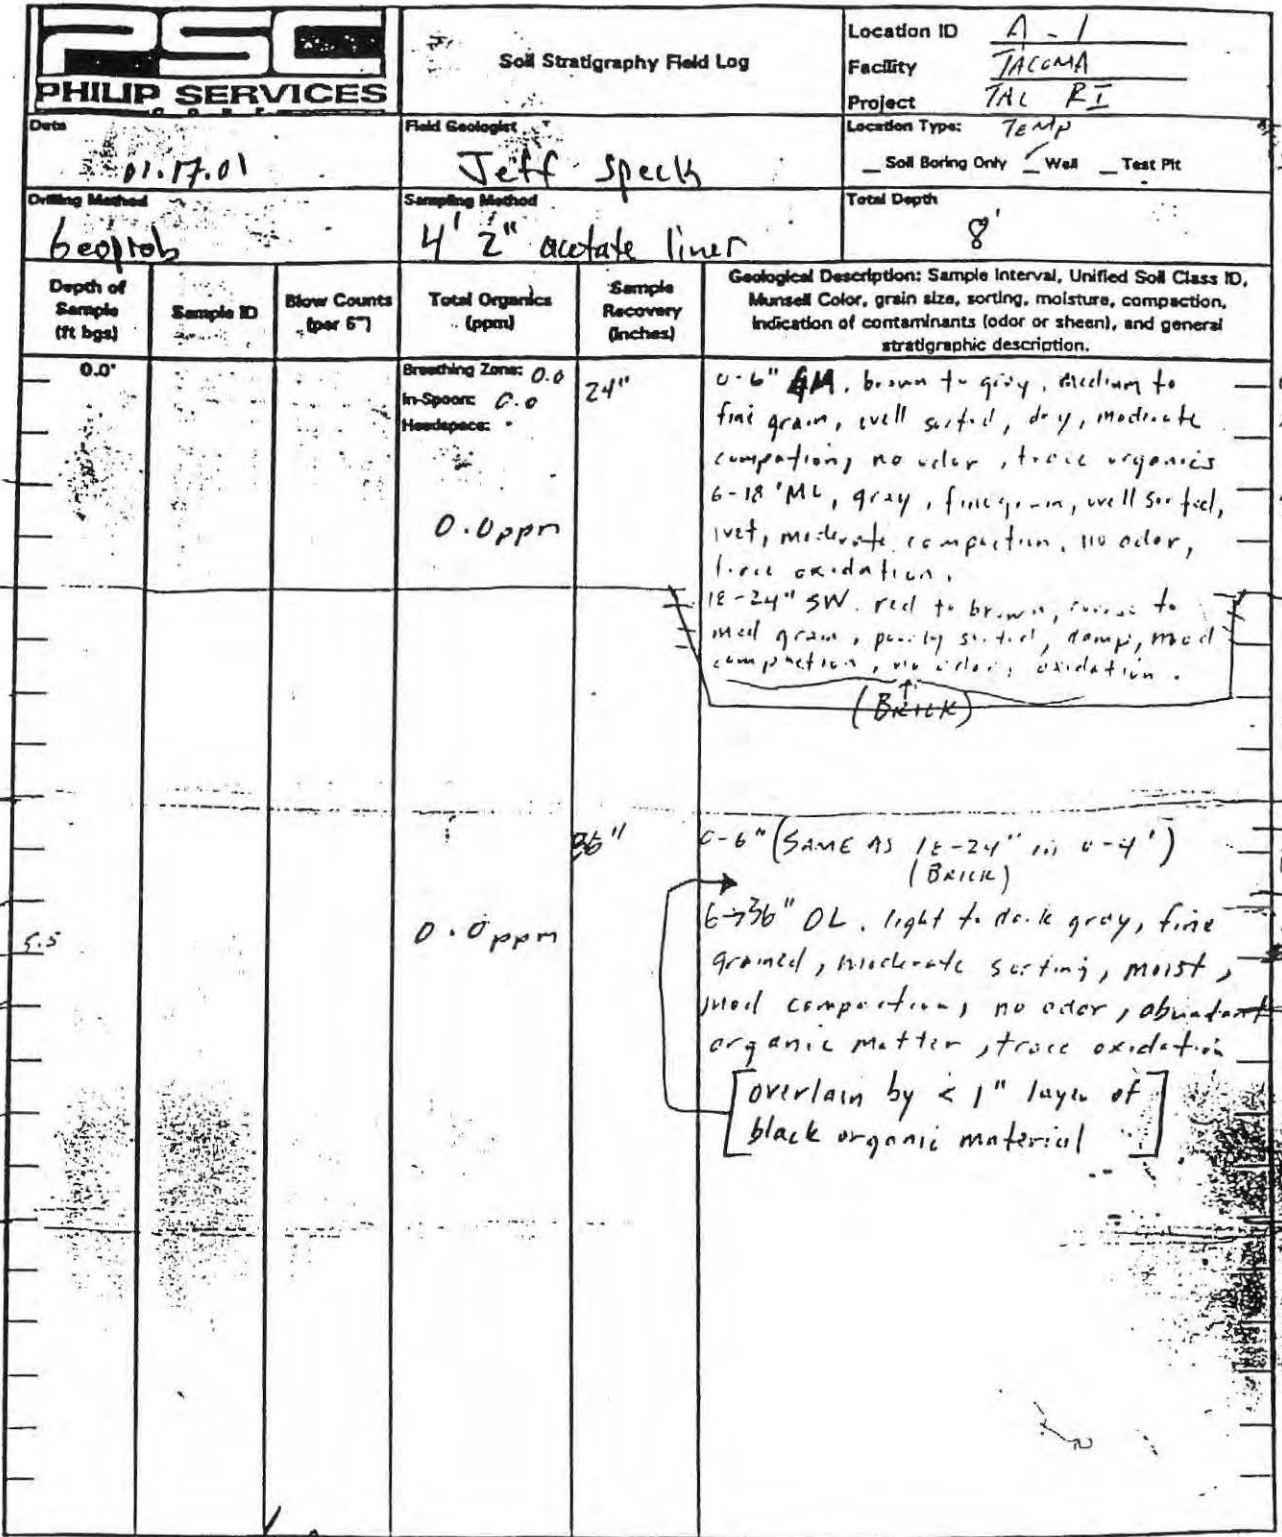 PSC
PHILIP SERVICES
Soil Stratigraphy Field Log
Location ID A-1
Facility TACOMA
Project TAC RI
Date
01.17.01
Field Geologist
Jeff Speck
Location Type: TEMP
_ Soil Boring Only ✓ Well _ Test Pit
Drilling Method
Geoprob
Sampling Method
4' 2" acetate liner
Total Depth
8'
Depth of Sample (ft bgs)
Sample ID
Blow Counts (per 6")
Total Organics (ppm)
Sample Recovery (inches)
Geological Description: Sample Interval, Unified Soil Class ID,
Munsell Color, grain size, sorting, moisture, compaction,
indication of contaminants (odor or sheen), and general
stratigraphic description.
0.0'
Breathing Zone: 0.0
In-Spoon: 0.0
Headspace:
0.0 ppm
24"
0-6" GM, brown to gray, medium to
fine grain, well sorted, dry, moderate
compation, no odor, trace organics
6-18' ML, gray, fine grain, well sorted,
wet, moderate compaction, no odor,
trace oxidation.
18-24" SW. red to brown, coarse to
med grain, poorly sorted, damp, mod
compaction, no odor, oxidation.
(BRICK)
5.5
0.0 ppm
36"
0-6" (SAME AS 18-24" in 0-4')
(BRICK)
6→36" OL, light to dark gray, fine
grained, moderate sorting, moist,
mod compaction, no odor, abundant
organic matter, trace oxidation
[overlain by < 1" layer of
black organic material]